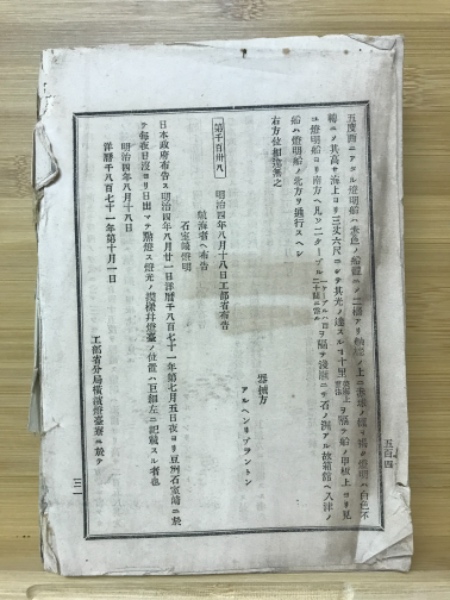 五度西ニアタル燈明船ハ赤色ノ船體ニノ二檣アリ軸檣ノ上ニ赤球ノ標ヲ揚ク燈明ハ白色不
轉ニノ其高サ海上ヨリ三丈六尺ニシテ其光ノ達スルヿ十里ヲ隔テ船ノ甲板上ヨリ見
ユ燈明船ヨリ南方ヘ凡ソ二ケーブルヲ隔テ淺瀬ニテ石ノ潟アル故箱館ヘ入津ノ
船ハ燈明船ノ北方ヲ通行スヘシ
右方位相違無之
器械方
アルヘンリブラントン
第千百卅八
明治四年八月十八日工部省布告
航海者ヘ布告
石室崎燈明
日本政府布告ス明治四年八月廿一日洋曆千八百七十一年第七月五日夜ヨリ豆州石室崎ニ於
テ毎夜日沒ヨリ日出マテ點燈ス燈光ノ模樣幷燈臺ノ位置ハ巨細左ニ記載スル者也
明治四年八月十八日
洋曆千八百七十一年第十月一日
工部省分局橫濱燈臺寮ニ於テ
五百四
三